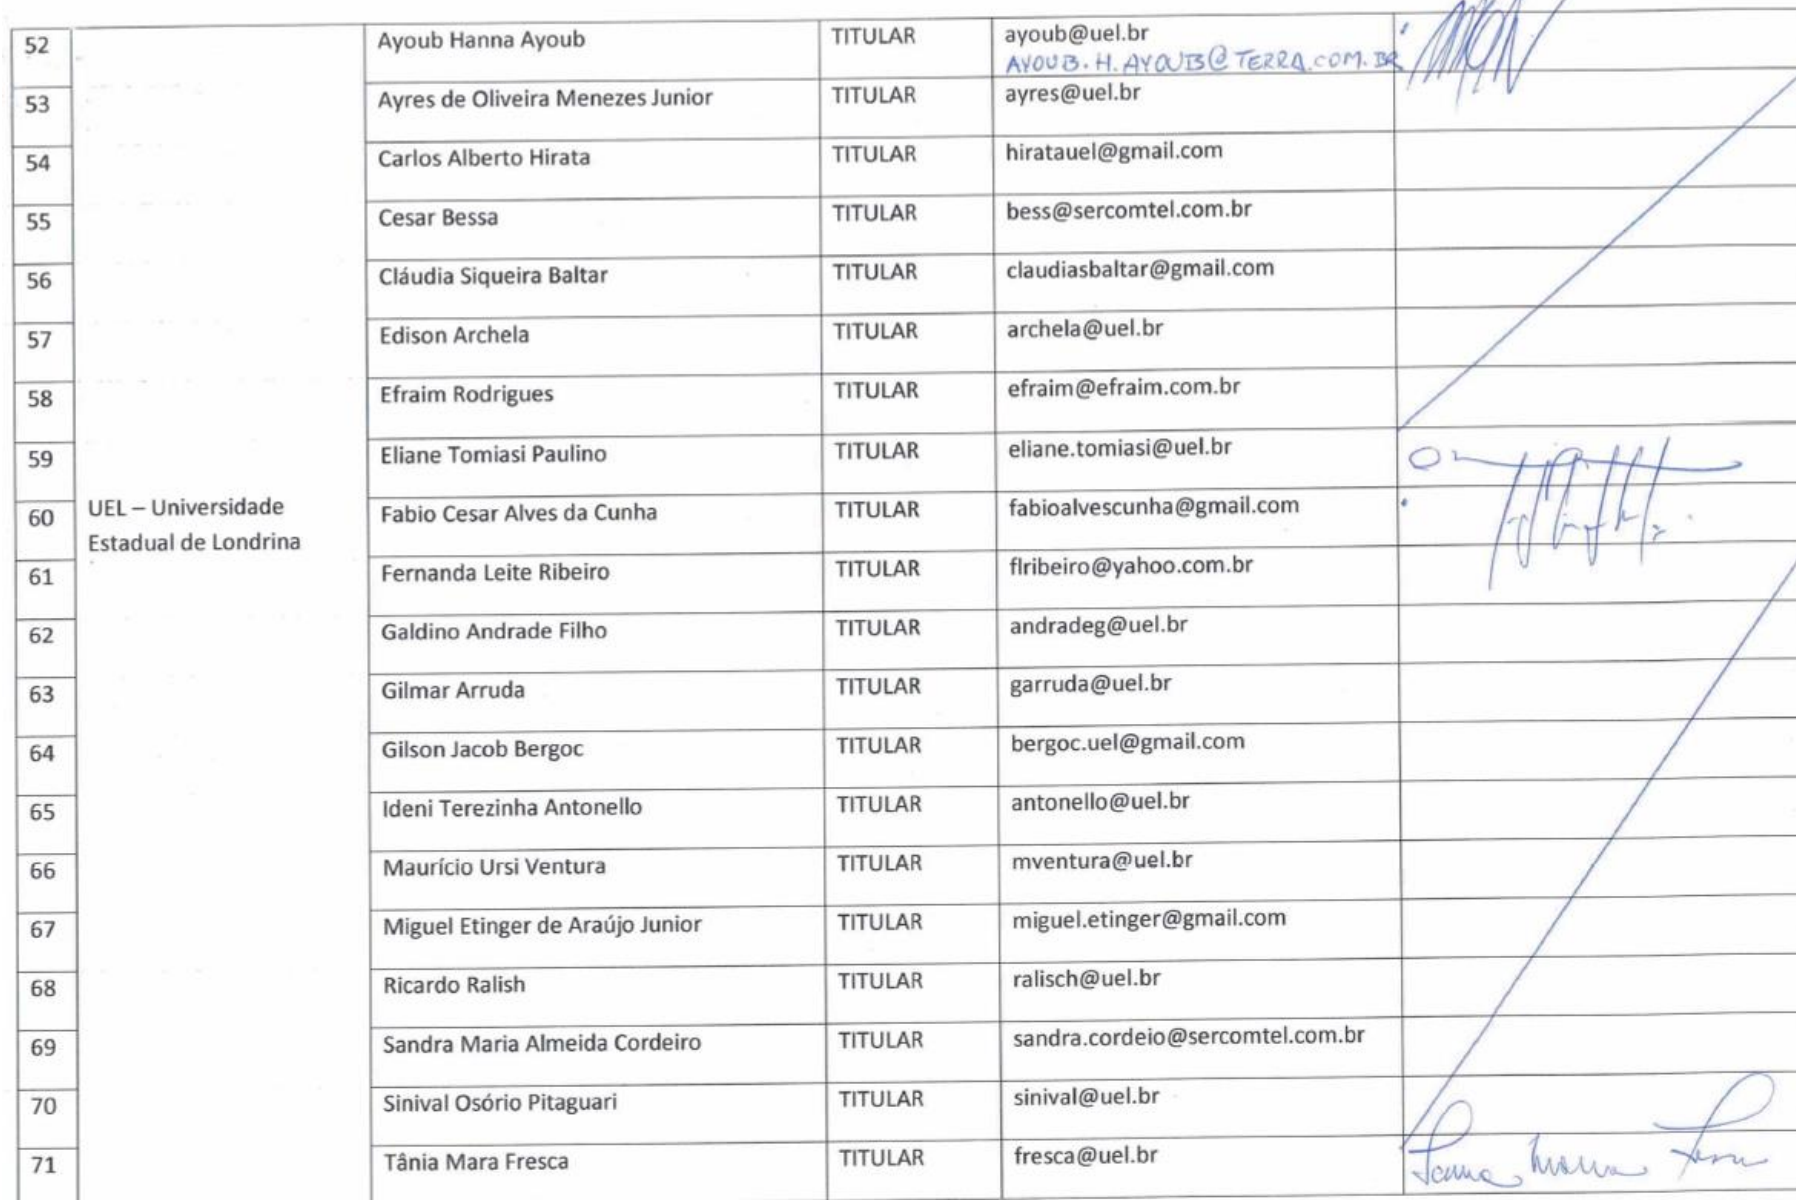 52 Ayoub Hanna Ayoub TITULAR ayoub@uel.br
AYOUB.H.AYOUB@TERRA.COM.BR
53 Ayres de Oliveira Menezes Junior TITULAR ayres@uel.br
54 Carlos Alberto Hirata TITULAR hiratauel@gmail.com
55 Cesar Bessa TITULAR bess@sercomtel.com.br
56 Cláudia Siqueira Baltar TITULAR claudiasbaltar@gmail.com
57 Edison Archela TITULAR archela@uel.br
58 Efraim Rodrigues TITULAR efraim@efraim.com.br
59 Eliane Tomiasi Paulino TITULAR eliane.tomiasi@uel.br
UEL – Universidade
Estadual de Londrina
60 Fabio Cesar Alves da Cunha TITULAR fabioalvescunha@gmail.com
61 Fernanda Leite Ribeiro TITULAR flribeiro@yahoo.com.br
62 Galdino Andrade Filho TITULAR andradeg@uel.br
63 Gilmar Arruda TITULAR garruda@uel.br
64 Gilson Jacob Bergoc TITULAR bergoc.uel@gmail.com
65 Ideni Terezinha Antonello TITULAR antonello@uel.br
66 Maurício Ursi Ventura TITULAR mventura@uel.br
67 Miguel Etinger de Araújo Junior TITULAR miguel.etinger@gmail.com
68 Ricardo Ralish TITULAR ralisch@uel.br
69 Sandra Maria Almeida Cordeiro TITULAR sandra.cordeio@sercomtel.com.br
70 Sinival Osório Pitaguari TITULAR sinival@uel.br
71 Tânia Mara Fresca TITULAR fresca@uel.br